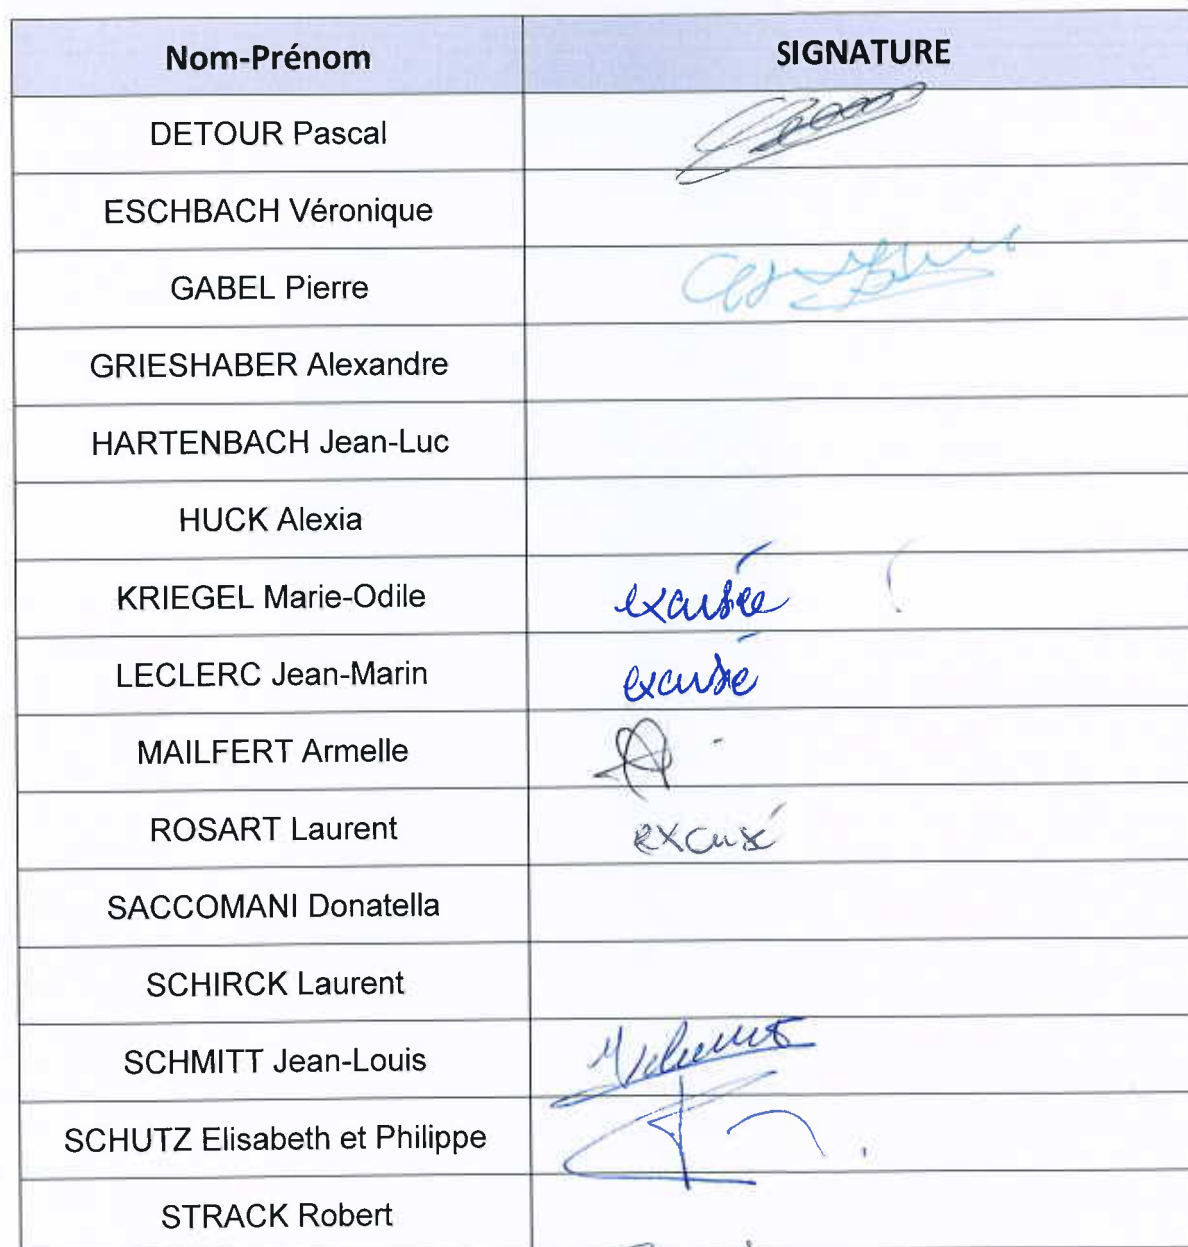 Nom-Prénom SIGNATURE
DETOUR Pascal
ESCHBACH Véronique
GABEL Pierre
GRIESHABER Alexandre
HARTENBACH Jean-Luc
HUCK Alexia
KRIEGEL Marie-Odile excusée
LECLERC Jean-Marin excusé
MAILFERT Armelle
ROSART Laurent excusé
SACCOMANI Donatella
SCHIRCK Laurent
SCHMITT Jean-Louis
SCHUTZ Elisabeth et Philippe
STRACK Robert